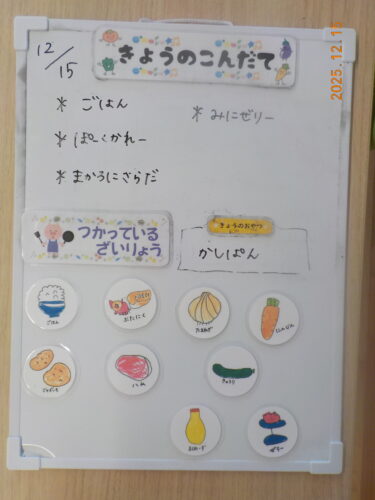 2025.12.15
12/15
きょうのこんだて
＊ ごはん
＊ みにぜりー
＊ ぽーくかれー
＊ まかろにさらだ
つかっている
ざいりょう
きょうのおやつ
かしぱん
ごはん
ぶたにく
たまねぎ
にんじん
きゅうり